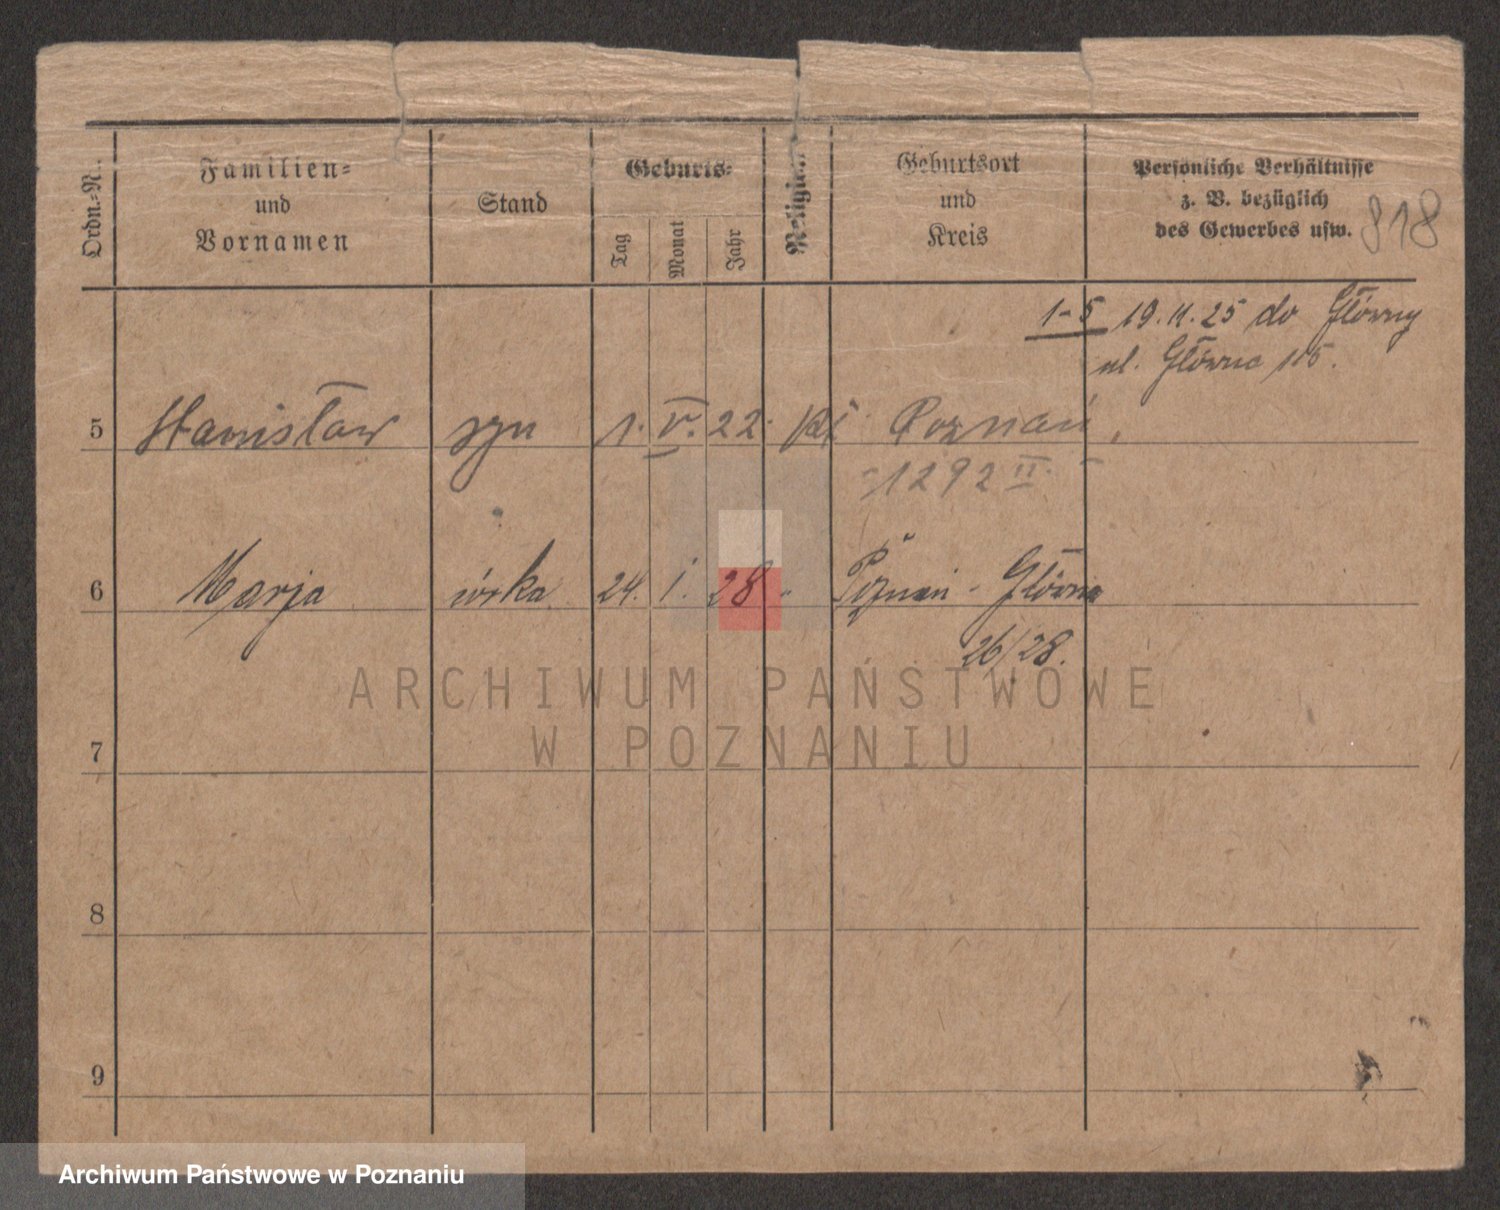 Ordn.-N.
Familien-
und
Vornamen
Stand
Geburts-
Tag
Monat
Jahr
Religion
Geburtsort
und
Kreis
Persönliche Verhältnisse
z. B. bezüglich
des Gewerbes usw.
818
1-5 19.11.25 do Główny
ul. Główna 115.
5 Stanisław syn 1. V. 22. kt Poznań
-1292 II. -
6 Marja córka 24. I. 28 " Poznań - Główna
26/28.
ARCHIWUM PAŃSTWOWE
W POZNANIU
7
8
9
Archiwum Państwowe w Poznaniu